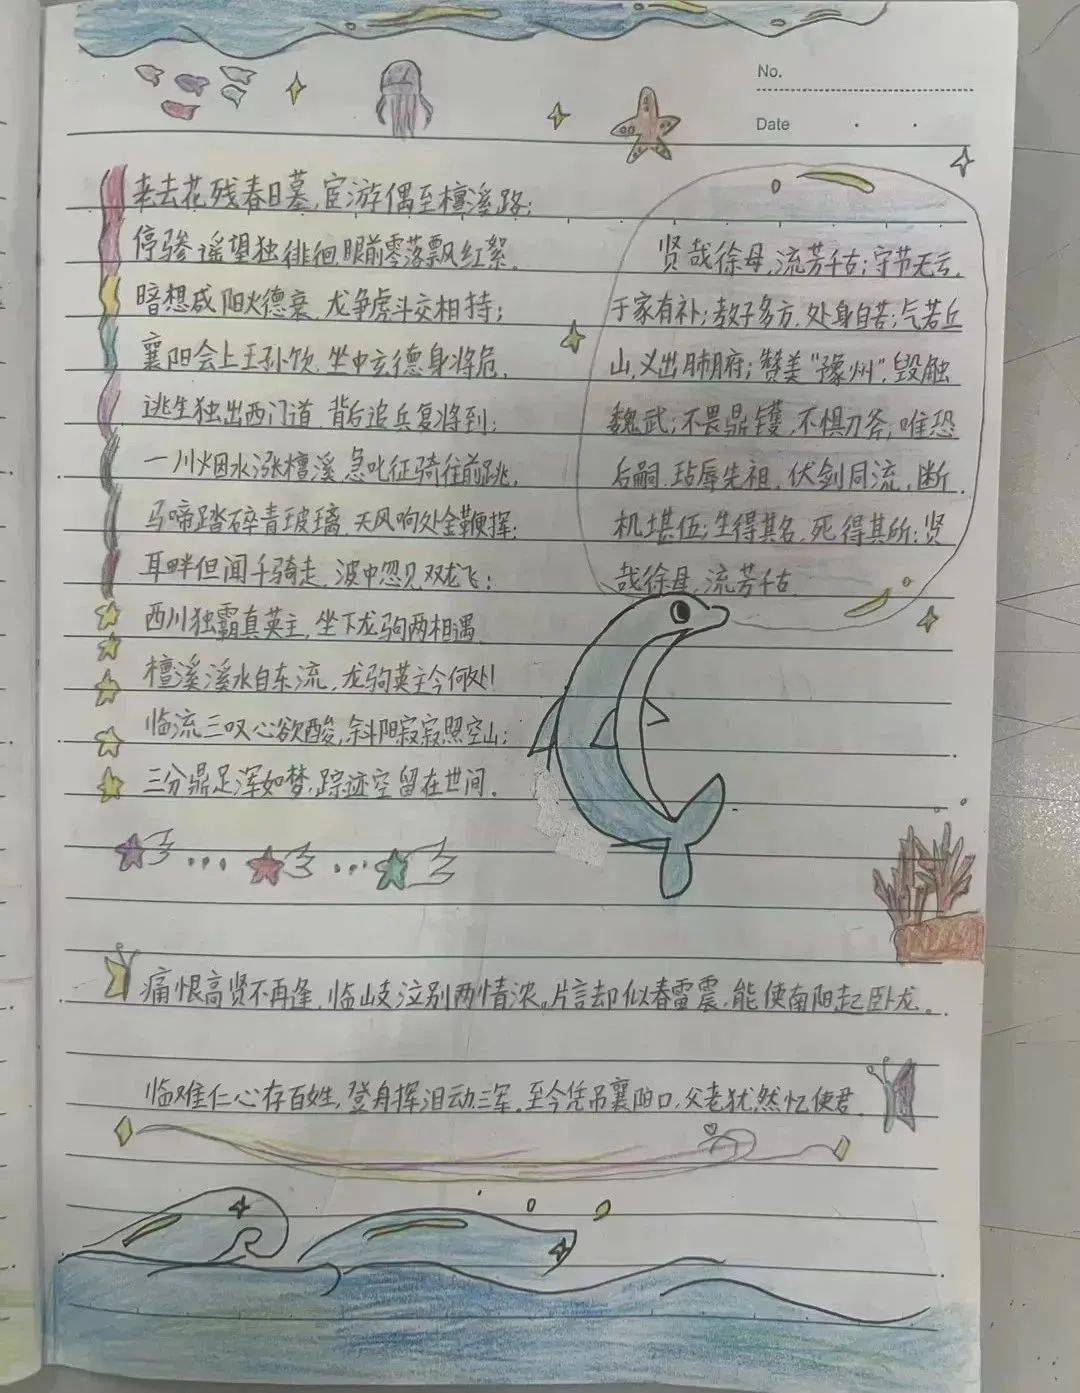 No.
Date
老去花残春日墓,宦游偶至檀溪路;
停骖遥望独徘徊,眼前零落飘红絮.
暗想咸阳火德衰,龙争虎斗交相持;
襄阳会上王孙饮,坐中玄德身将危.
逃生独出西门道,背后追兵复将到;
一川烟水涨檀溪,急叱征骑往前跳.
马啼踏碎青玻璃,天风响处金鞭挥;
耳畔但闻千骑走,波中忽见双龙飞;
西川独霸真英主,坐下龙驹两相遇.
檀溪溪水自东流,龙驹英主今何处!
临流三叹心欲酸,斜阳寂寂照空山;
三分鼎足浑如梦,踪迹空留在世间.
贤哉徐母,流芳千古;守节无亏,
于家有补;教子多方,处身自苦;气若丘
山,义出肺府;赞美"豫州",毁触
魏武;不畏鼎镬,不惧刀斧,唯恐
后嗣,玷辱先祖,伏剑同流,断
机堪伍;生得其名,死得其所;贤
哉徐母,流芳千古.
痛恨高贤不再逢,临岐泣别两情浓。片言却似春雷震,能使南阳起卧龙。
临难仁心存百姓,登舟挥泪动三军.至今凭吊襄阳口,父老犹然忆使君.